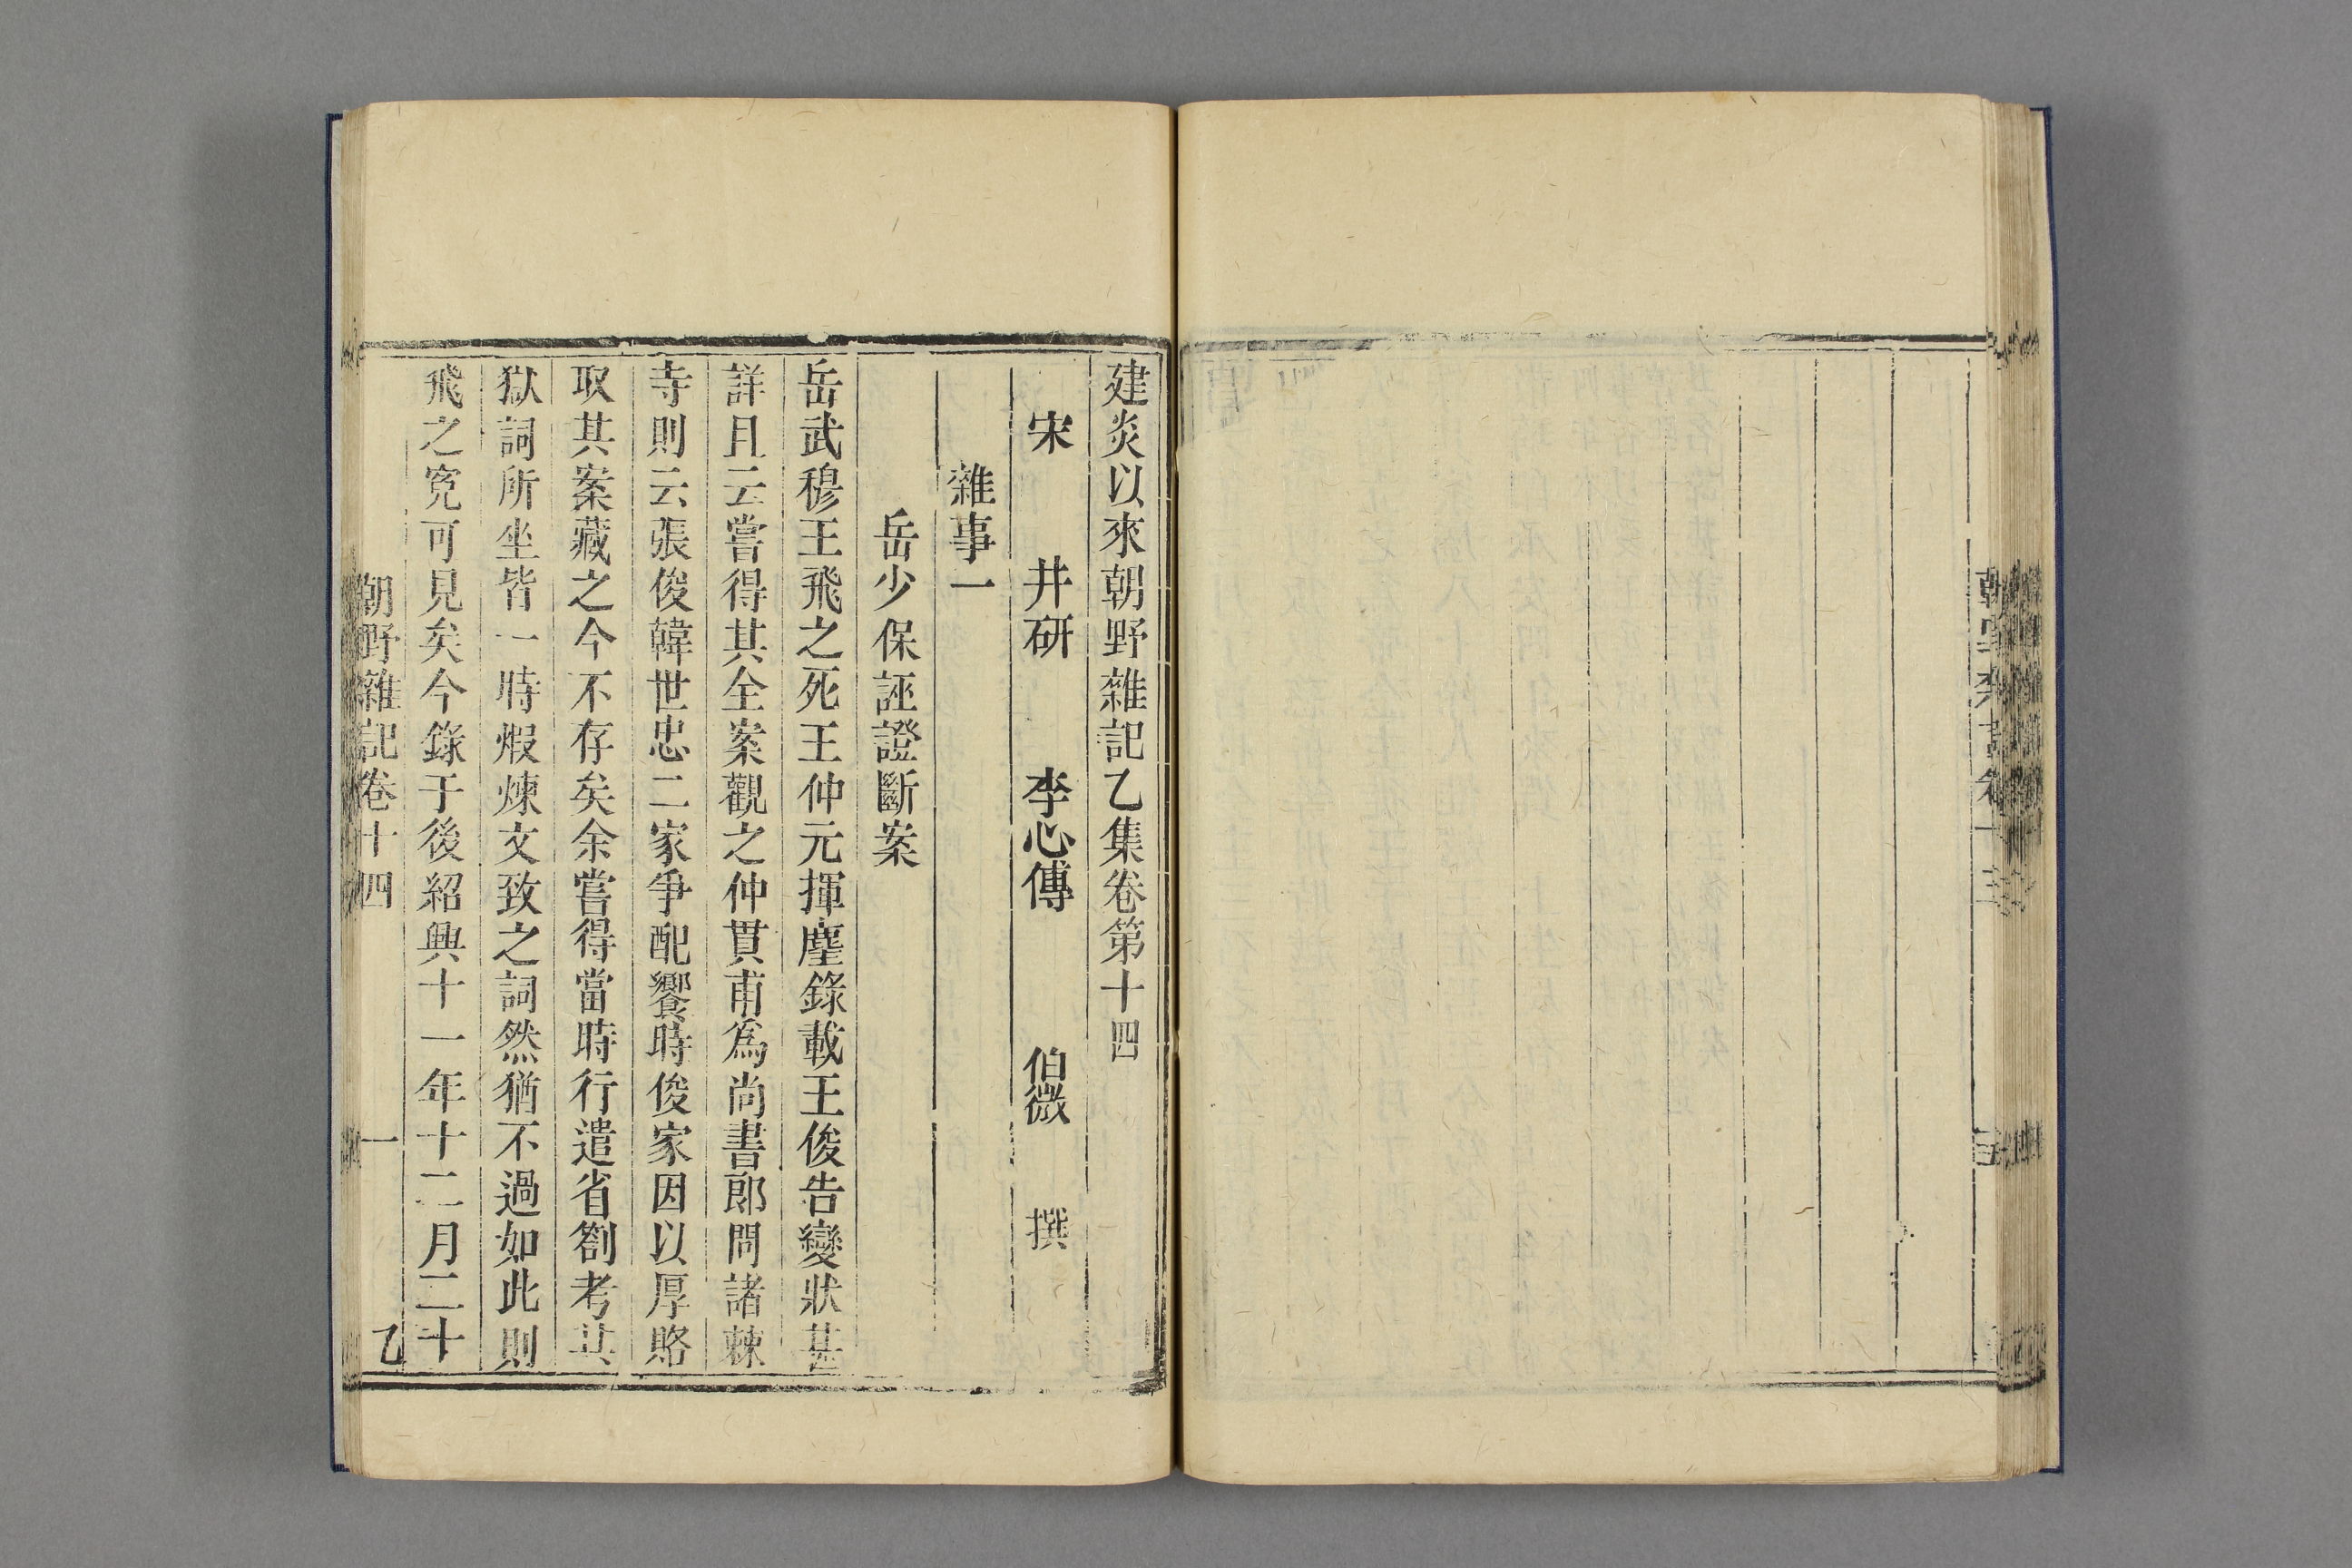 建炎以來朝野雜記乙集卷第十四
宋 井研 李心傳 伯微 撰
雜事一
岳少保誣證斷案
岳武穆王飛之死王仲元揮麈錄載王俊告變狀甚
詳且云嘗得其全案觀之仲貫甫爲尚書郎問諸棘
寺則云張俊韓世忠二家爭配饗時俊家因以厚賂
取其案藏之今不存矣余嘗得當時行遣省劄考其
獄詞所坐皆一時煆煉文致之詞然猶不過如此則
飛之寃可見矣今錄于後紹興十一年十二月二十
朝野雜記卷十四 一 乙